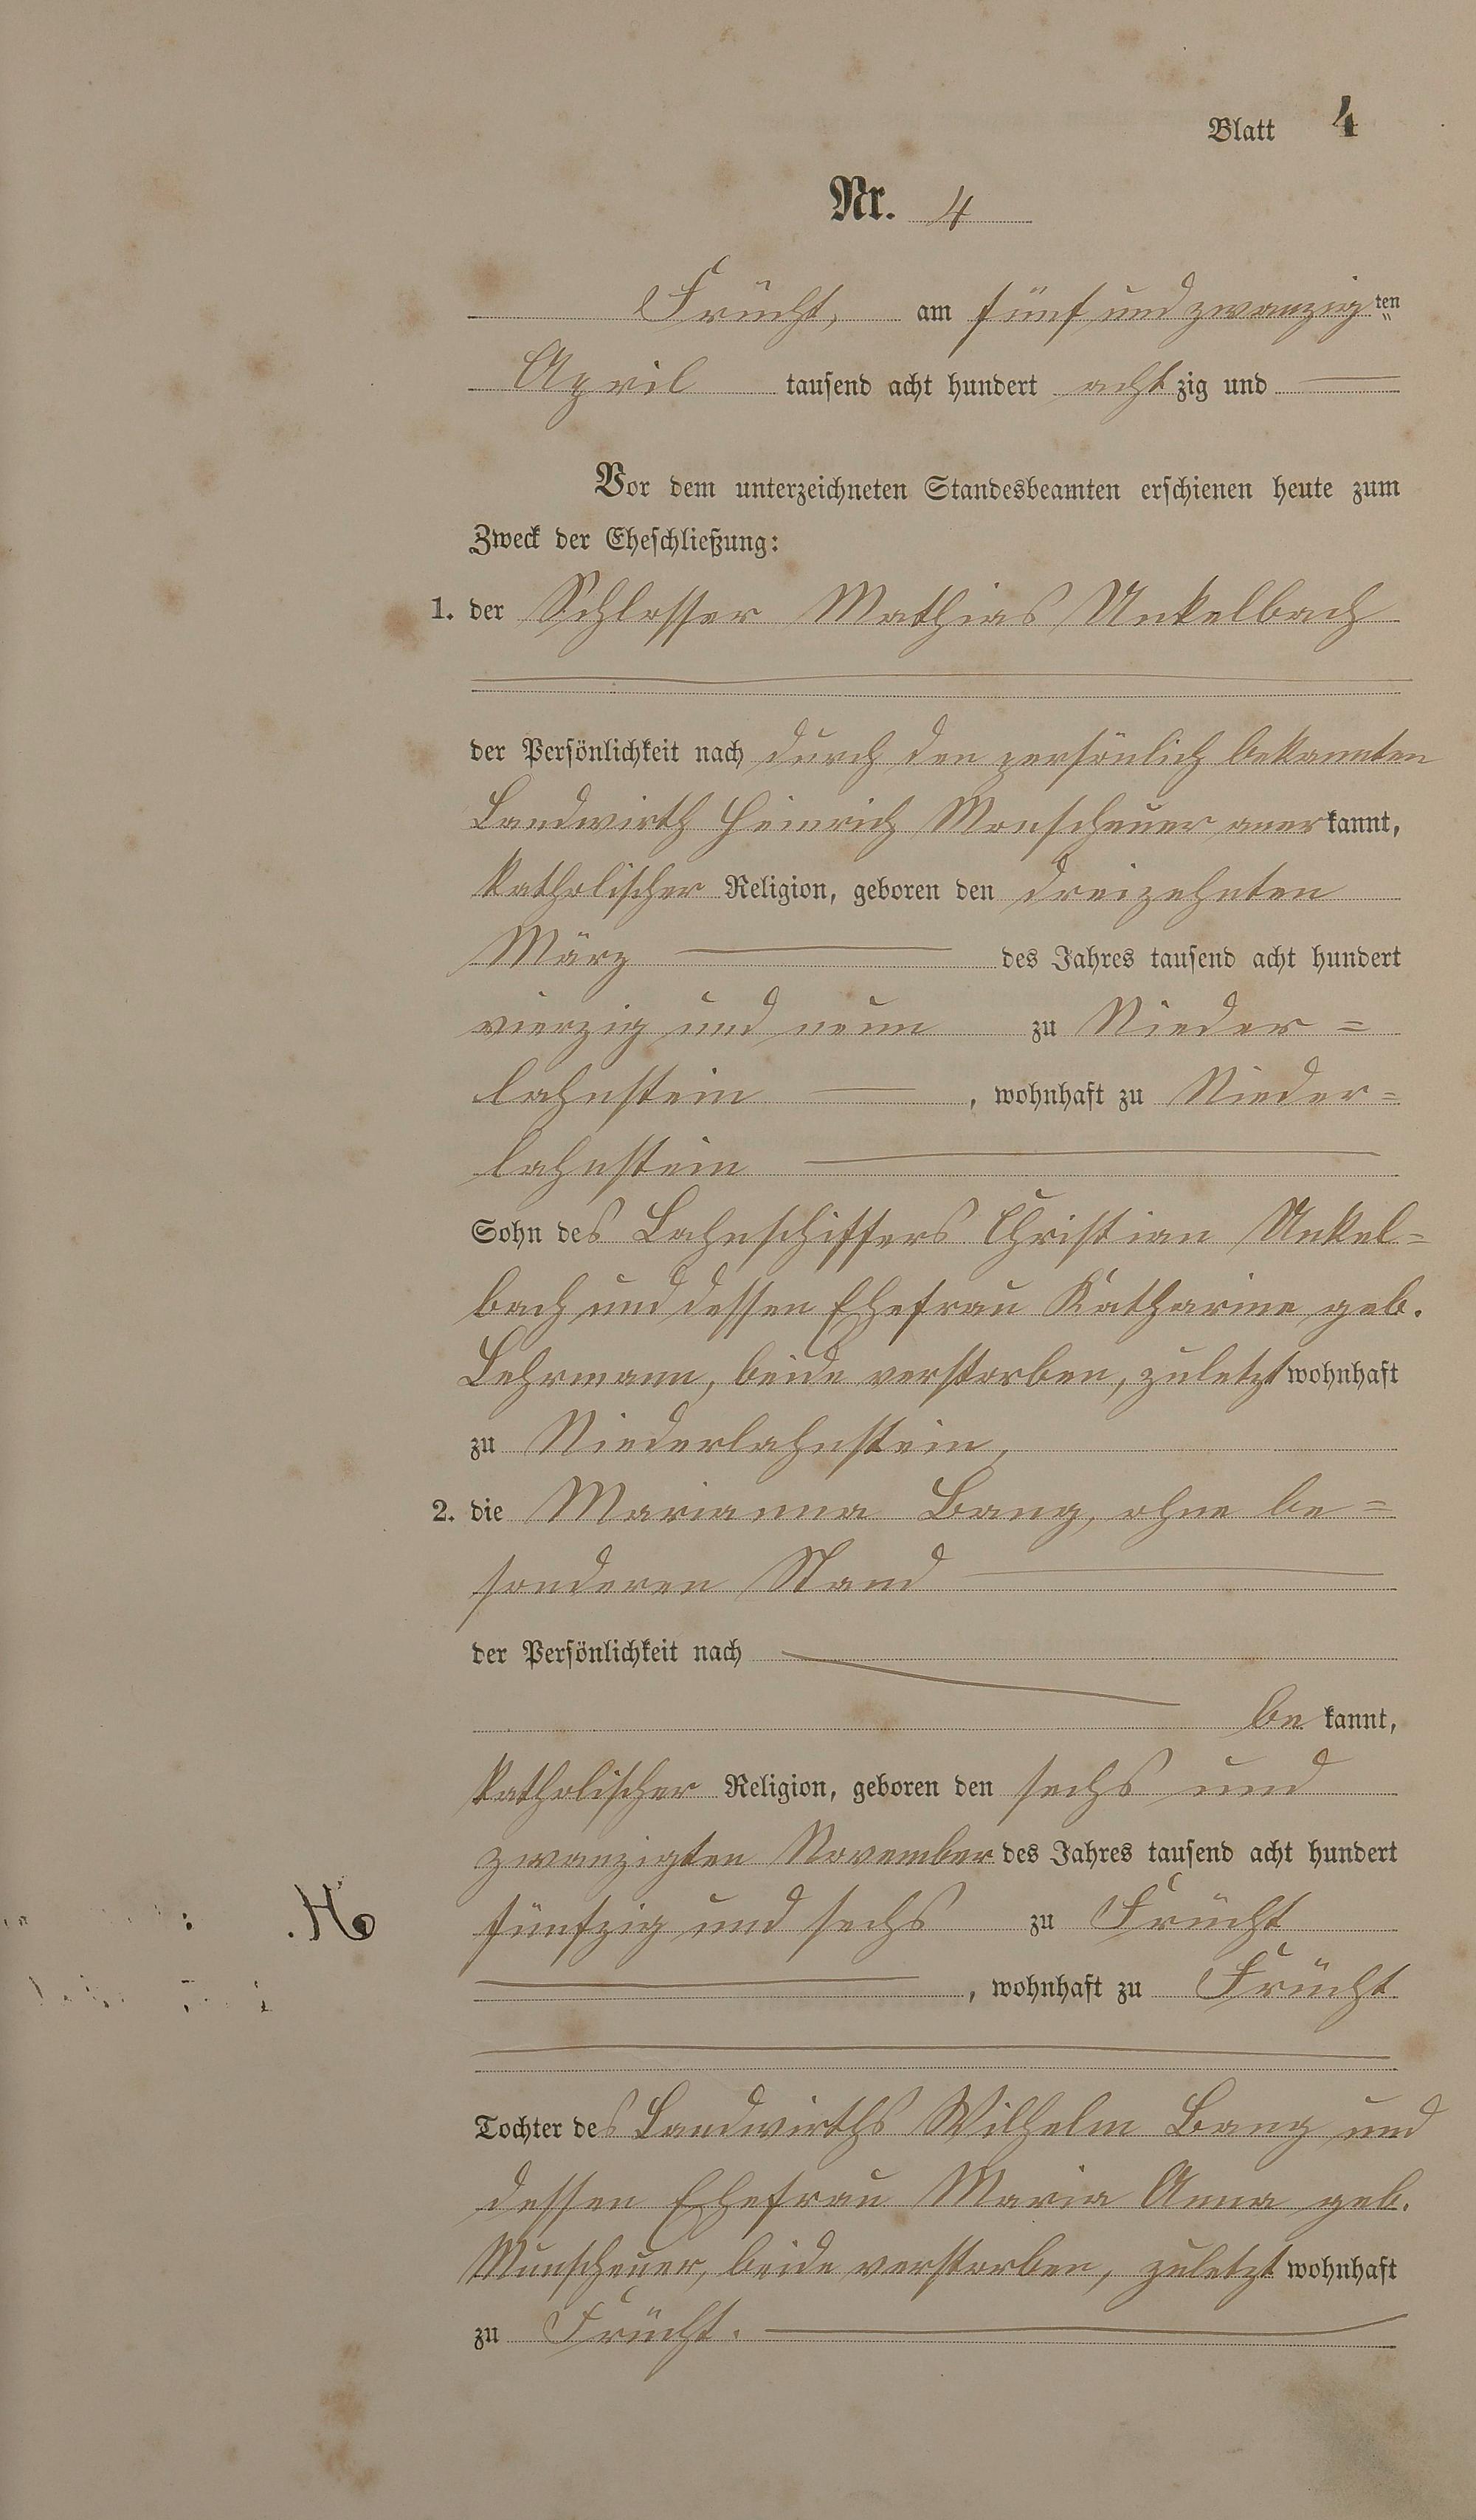 Blatt 4
Nr. 4
Frücht, am fünf und zwanzig ten
April tausend acht hundert acht zig und
Vor dem unterzeichneten Standesbeamten erschienen heute zum
Zweck der Eheschließung:
1. der Schlosser Mathias Unkelbach
der Persönlichkeit nach durch den persönlich bekannten
Landwirth Heinrich Monscheuer aner kannt,
katholischer Religion, geboren den dreizehnten
März des Jahres tausend acht hundert
vierzig und neun zu Nieder=
lahnstein , wohnhaft zu Nieder=
lahnstein
Sohn des Lahnschiffers Christian Unkel=
bach und dessen Ehefrau Katharine geb.
Lehrmann, beide verstorben, zuletzt wohnhaft
zu Niederlahnstein,
2. die Marianna Bang, ohne be=
sonderen Stand
der Persönlichkeit nach
be kannt,
katholischer Religion, geboren den sechs und
zwanzigten November des Jahres tausend acht hundert
fünfzig und sechs zu Frücht
, wohnhaft zu Frücht
Tochter des Landwirths Wilhelm Bang und
dessen Ehefrau Maria Anna geb.
Munscheuer, beide verstorben, zuletzt wohnhaft
zu Frücht.